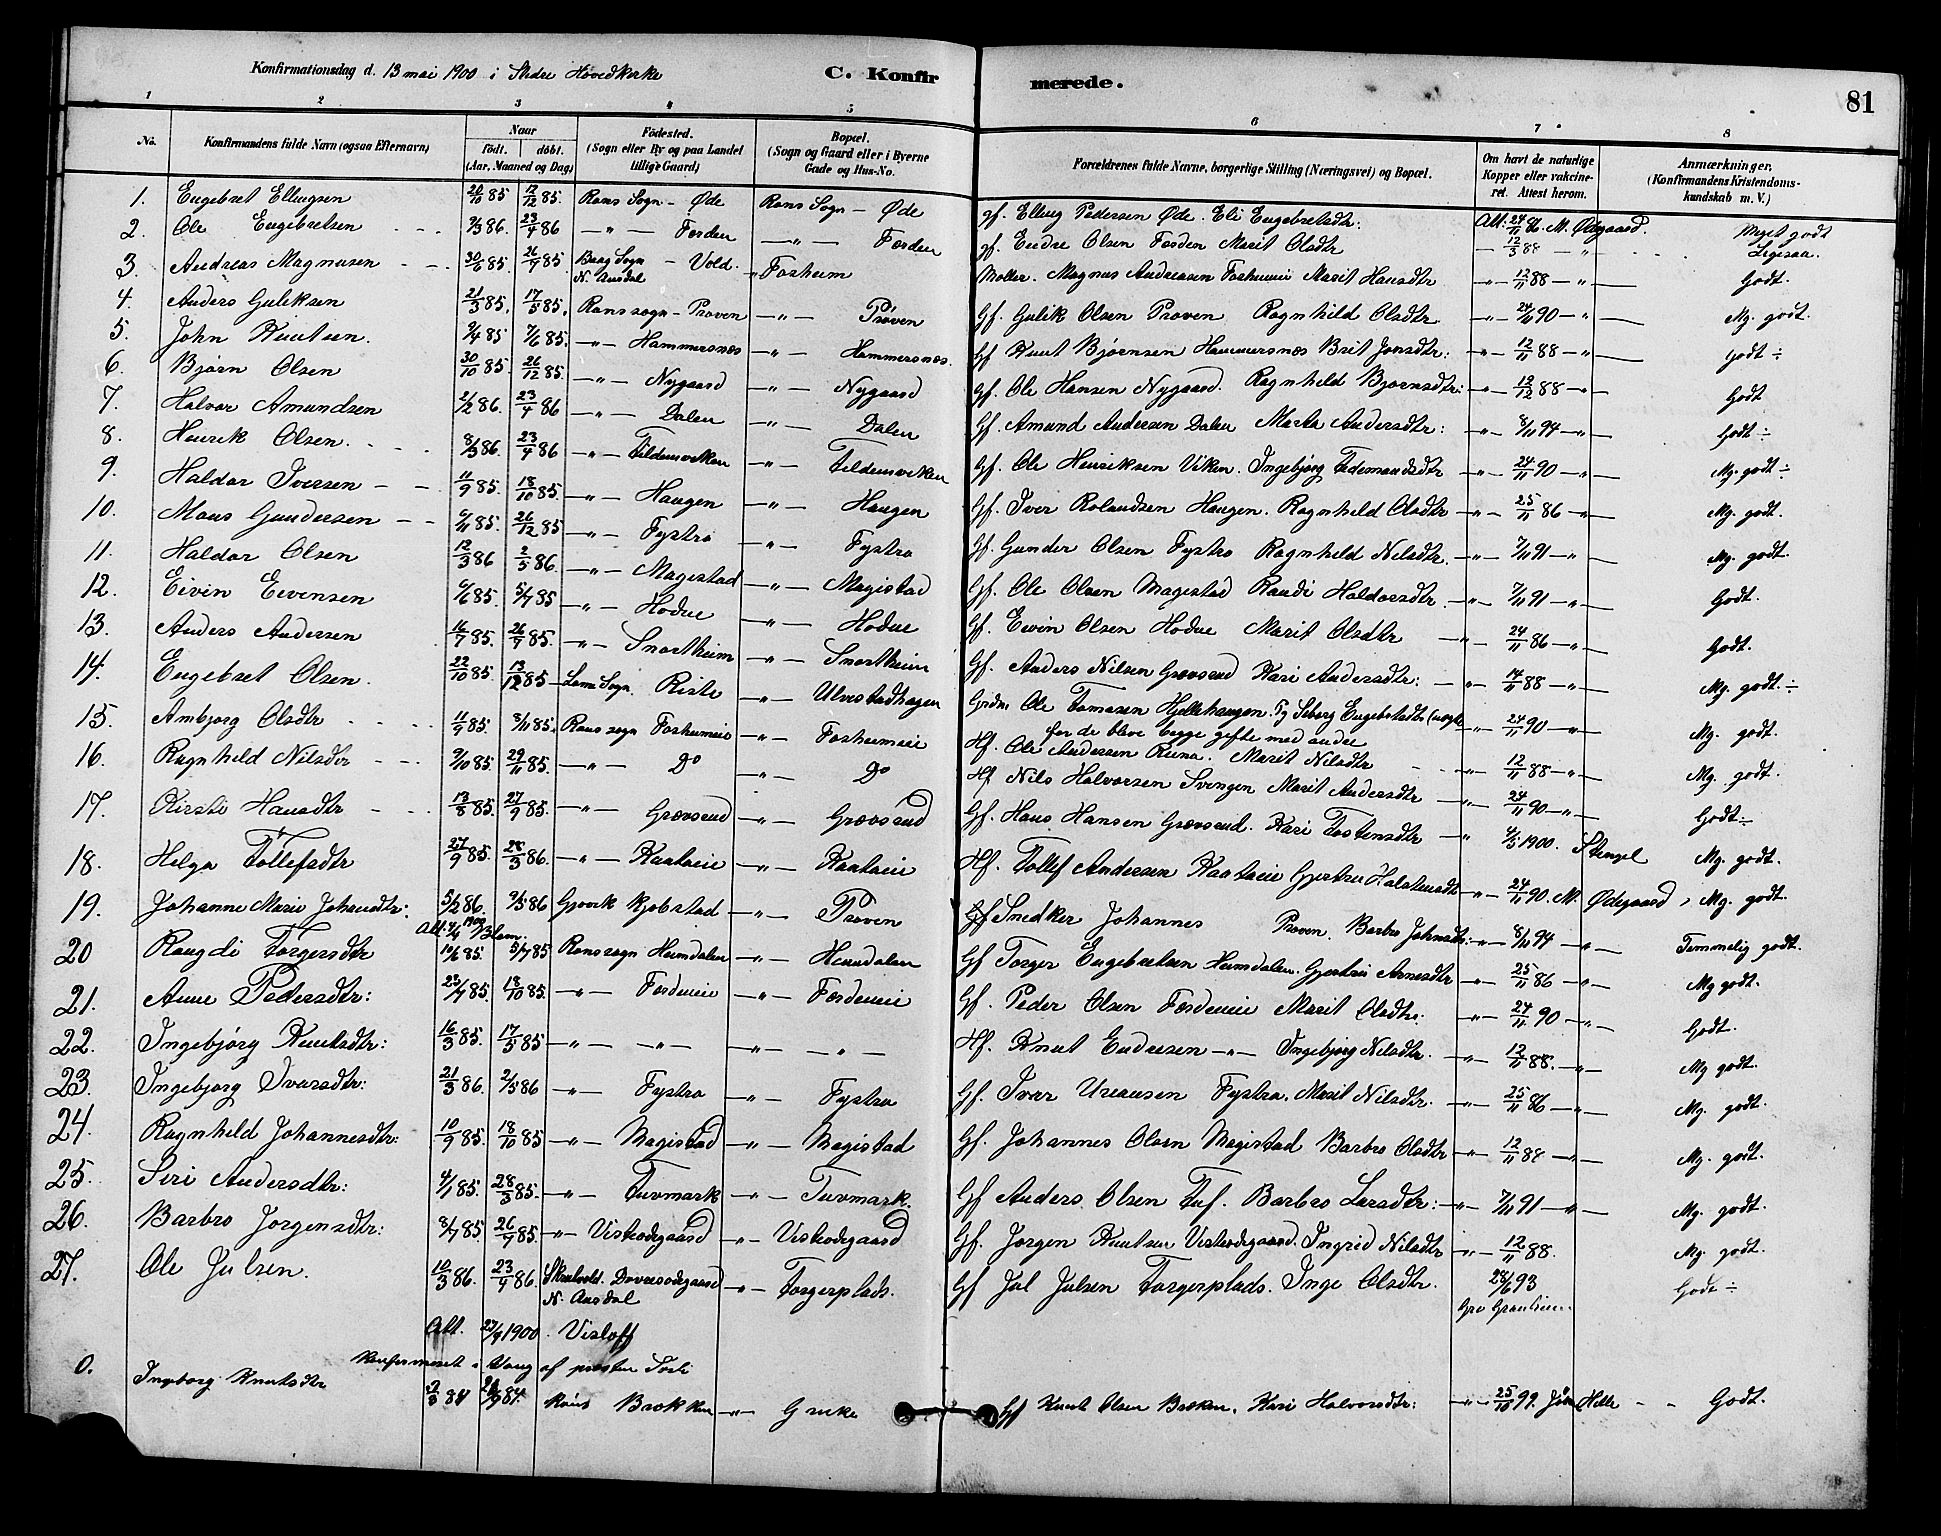 Konfirmationsdag d. 13 mai 1900 i Slidre Hovedkirke C. Konfir merede. 81
1 2 3 4 5 6 7 8
No. Konfirmandens fulde Navn (ogsaa Efternavn) Naar født. døbt. (Aar, Maaned og Dag) Fødested. (Sogn eller By og paa Landet tillige Gaard) Bopæl. (Sogn og Gaard eller i Byerne Gade og Hus-No. Forældrenes fulde Navne, borgerlige Stilling (Næringsvei) og Bopæl. Om havt de naturlige Kopper eller vakcineret. Attest herom. Anmærkninger, (Konfirmandens Kristendomskundskab m. V.)
1. Engebret Ellingsen 20/10 85 12/12 85. Rons Sogn - Øde Rons Sogn - Øde gf. Elling Pedersen Øde. Eli Engebretsdtr. Att. 24/11 86. M. Ødegaard. Meget godt
2. Ole Engebretsen 9/3 86. 23/4 86 —"— Forden —"— Forden gf. Endre Olsen Forden Marit Olsdtr — 12/3 88 — " Ligesaa.
3. Andreas Magnusen 30/6 85. 26/9 85. Bang Sogn N. Aurdal - Vold. " Fosheim Møller. Magnus Andreassen Fosheimeie Marit Hansdtr —"— 12/11 88 —"— Godt.
4. Anders Guliksen 21/3 85. 17/5 85. Rons sogn - Prøven —"— Prøven Gf. Gulik Olsen Prøven Ragnhild Olsdtr —"— 24/11 90 —"— Mg. godt.
5. John Knutsen. 9/4 85 7/6 85. —"— Hammersnæs —"— Hammersnæs. Gf Knut Bjørnsen Hammersnæs Brit Jonsdtr: —"— 12/11 88 —"— Godt ÷
6. Bjørn Olsen 30/10 85. 26/12 85. —"— Nygaard —"— Nygaard Gf. Ole Hansen Nygaard. Ragnhild Bjørnsdtr: —"— 12/12 88 —"— Godt
7. Halvor Amundsen 2/2 86. 23/4 86 —"— Dalen —"— Dalen Gf. Amund Andersen Dalen Marta Andersdtr: —"— 8/11 94 —"— Godt ÷
8. Henrik Olsen. 8/3 86. 23/4 86 —"— Fildenviken —"— Fildenviken Gf. Ole Henriksen Viken. Ingebjørg Tidemandsdtr —"— 24/11 90 —"— Mg. godt ÷
9. Haldor Iversen 11/9 85. 18/10 85. —"— Haugen —"— Haugen Gf. Iver Rolandsen Haugen. Ragnhild Olsdtr —"— 25/11 86 —"— Mg. godt.
10. Mons Gundersen 4/11 85. 26/12 85 —"— Fystro —"— Fystro Gf. Gunder Olsen Fystro Ragnhild Nilsdtr. —"— 7/11 91 —"— Mg. godt.
11. Haldor Olsen 12/3 86 2/5 86. —"— Magistad —"— Magistad Gf. Ole Olsen Magistad Randi Haldorsdtr —"— 7/11 91 —"— Godt.
12. Eivin Eivensen 4/6 85. 5/7 85 —"— Hodne —"— Hodne Gf. Eivin Olsen Hodne Marit Olsdtr —"— 24/11 86 —"— Godt.
13. Anders Andersen 16/7 85. 26/9 85. —"— Snortheim —"— Snortheim Gf. Anders Nilsen Grøvsrud Kari Andersdtr: —"— 14/11 88 —"— Mg. godt. ÷
14. Engebret Olsen. 22/10 85. 13/12 85 Lomi Sogn. Riste —"— Ulvestadhagen Grdm Ole Tomasen Hjellehaugen. Ty Siborg Engebretsdtr (uægte —"— 24/11 90 —"— Mg. godt.
for de bleve begge gifte med andre
15. Ambjørg Olsdtr 11/9 85. 8/11 85. Rons sogn Fosheimeie —"— Fosheimeie Hf. Ole Andersen Runa. Marit Nilsdtr —"— 12/11 88 —"— Mg. godt.
16. Ragnhild Nilsdtr 9/10 85. 29/11 85. —"— Do —"— Do Hf Nils Halvorsen Svingen Marit Andersdtr —"— 24/11 90 —"— Godt ÷
17. Kirsti Hansdtr 13/8 85. 27/9 85. —"— Grøvsrud —"— Grøvsrud Gf. Hans Hansen Grøvsrud. Kari Tostensdtr —"— 4/5 1900. Stengel Mg. godt.
18. Helga Tollefsdtr 27/9 85. 28/3 86. —"— Kaataeie —"— Kaataeie Hf. Tollef Andersen Kaataeie Gjertru Halstensdtr —"— 24/11 90. M. Ødegaard, Mg. godt.
19. Johanne Marie Johansdtr: 5/2 86. 9/5 86 Gjøvik Kjøbstad —"— Prøven Gf Snedker Johannes Prøven. Barbro Johnsdtr: —"— 8/11 94 —"— Temmelig godt.
20 Rangdi Torgersdtr 10/6 85. 5/7 85 Ronssogn Heimdalen —"— Heimdalen Gf Torger Engebretsen Heimdalen. Gjertru Arnesdtr —"— 25/11 86 —"— Mg godt.
21. Anne Pedersdtr: 23/7 85. 18/10 85. —"— Fordeneie —"— Fordeneie Gf. Peder Olsen Fordeneie Marit Olsdtr: —"— 24/11 90 —"— Godt.
22. Ingebjørg Knutsdtr: 16/3 85. 17/5 85 —"— —"— —"— —"— Hf. Knut Endresen —"— Ingebjørg Nilsdtr. —"— 12/11 88. —"— Mg godt.
23. Ingebjørg Ivarsdtr: 21/3 86. 2/5 86 —"— Fystro —"— Fystro Gf. Ivar Ureansen Fystro. Marit Nilsdtr. —"— 25/11 86 —"— Mg. godt.
24. Ragnhild Johannesdtr: 10/9 85. 18/10 85 —"— Magistad —"— Magistad Gf. Johannes Olsen Magistad Barbro Olsdtr —"— 12/11 88 —"— Mg. godt.
25. Siri Andersdtr: 4/1 85. 28/3 85. —"— Tuvmark —"— Tuvmark. Gf Anders Olsen Tuf. Barbro Larsdtr: —"— 7/11 91 —"— Mg. godt.
26. Barbro Jørgensdtr: 8/7 85. 26/9 85. —"— Visteødegaard —"— Visteødegaard Gf. Jørgen Knutsen Visteødegaard. Ingrid Nilsdtr —"— 12/11 88. Mg. godt.
27. Ole Julsen. 10/3 86. 23/4 86. Skrutvold. N. Aurdal —"— Torgerplads. Gf Jul Julsen Torgerplads. Inge Olsdtr. 28/6 93 Godt ÷
Att. 23/9 1900. Visloff
Konfirmeret i Vang af presten
0. Ingeborg Knutsdtr 84 84. Røns Brokken —"— Gf Knut Olsen Brokken. Kari Halvorsdtr: —"— 25/10 99. Helle Godt.